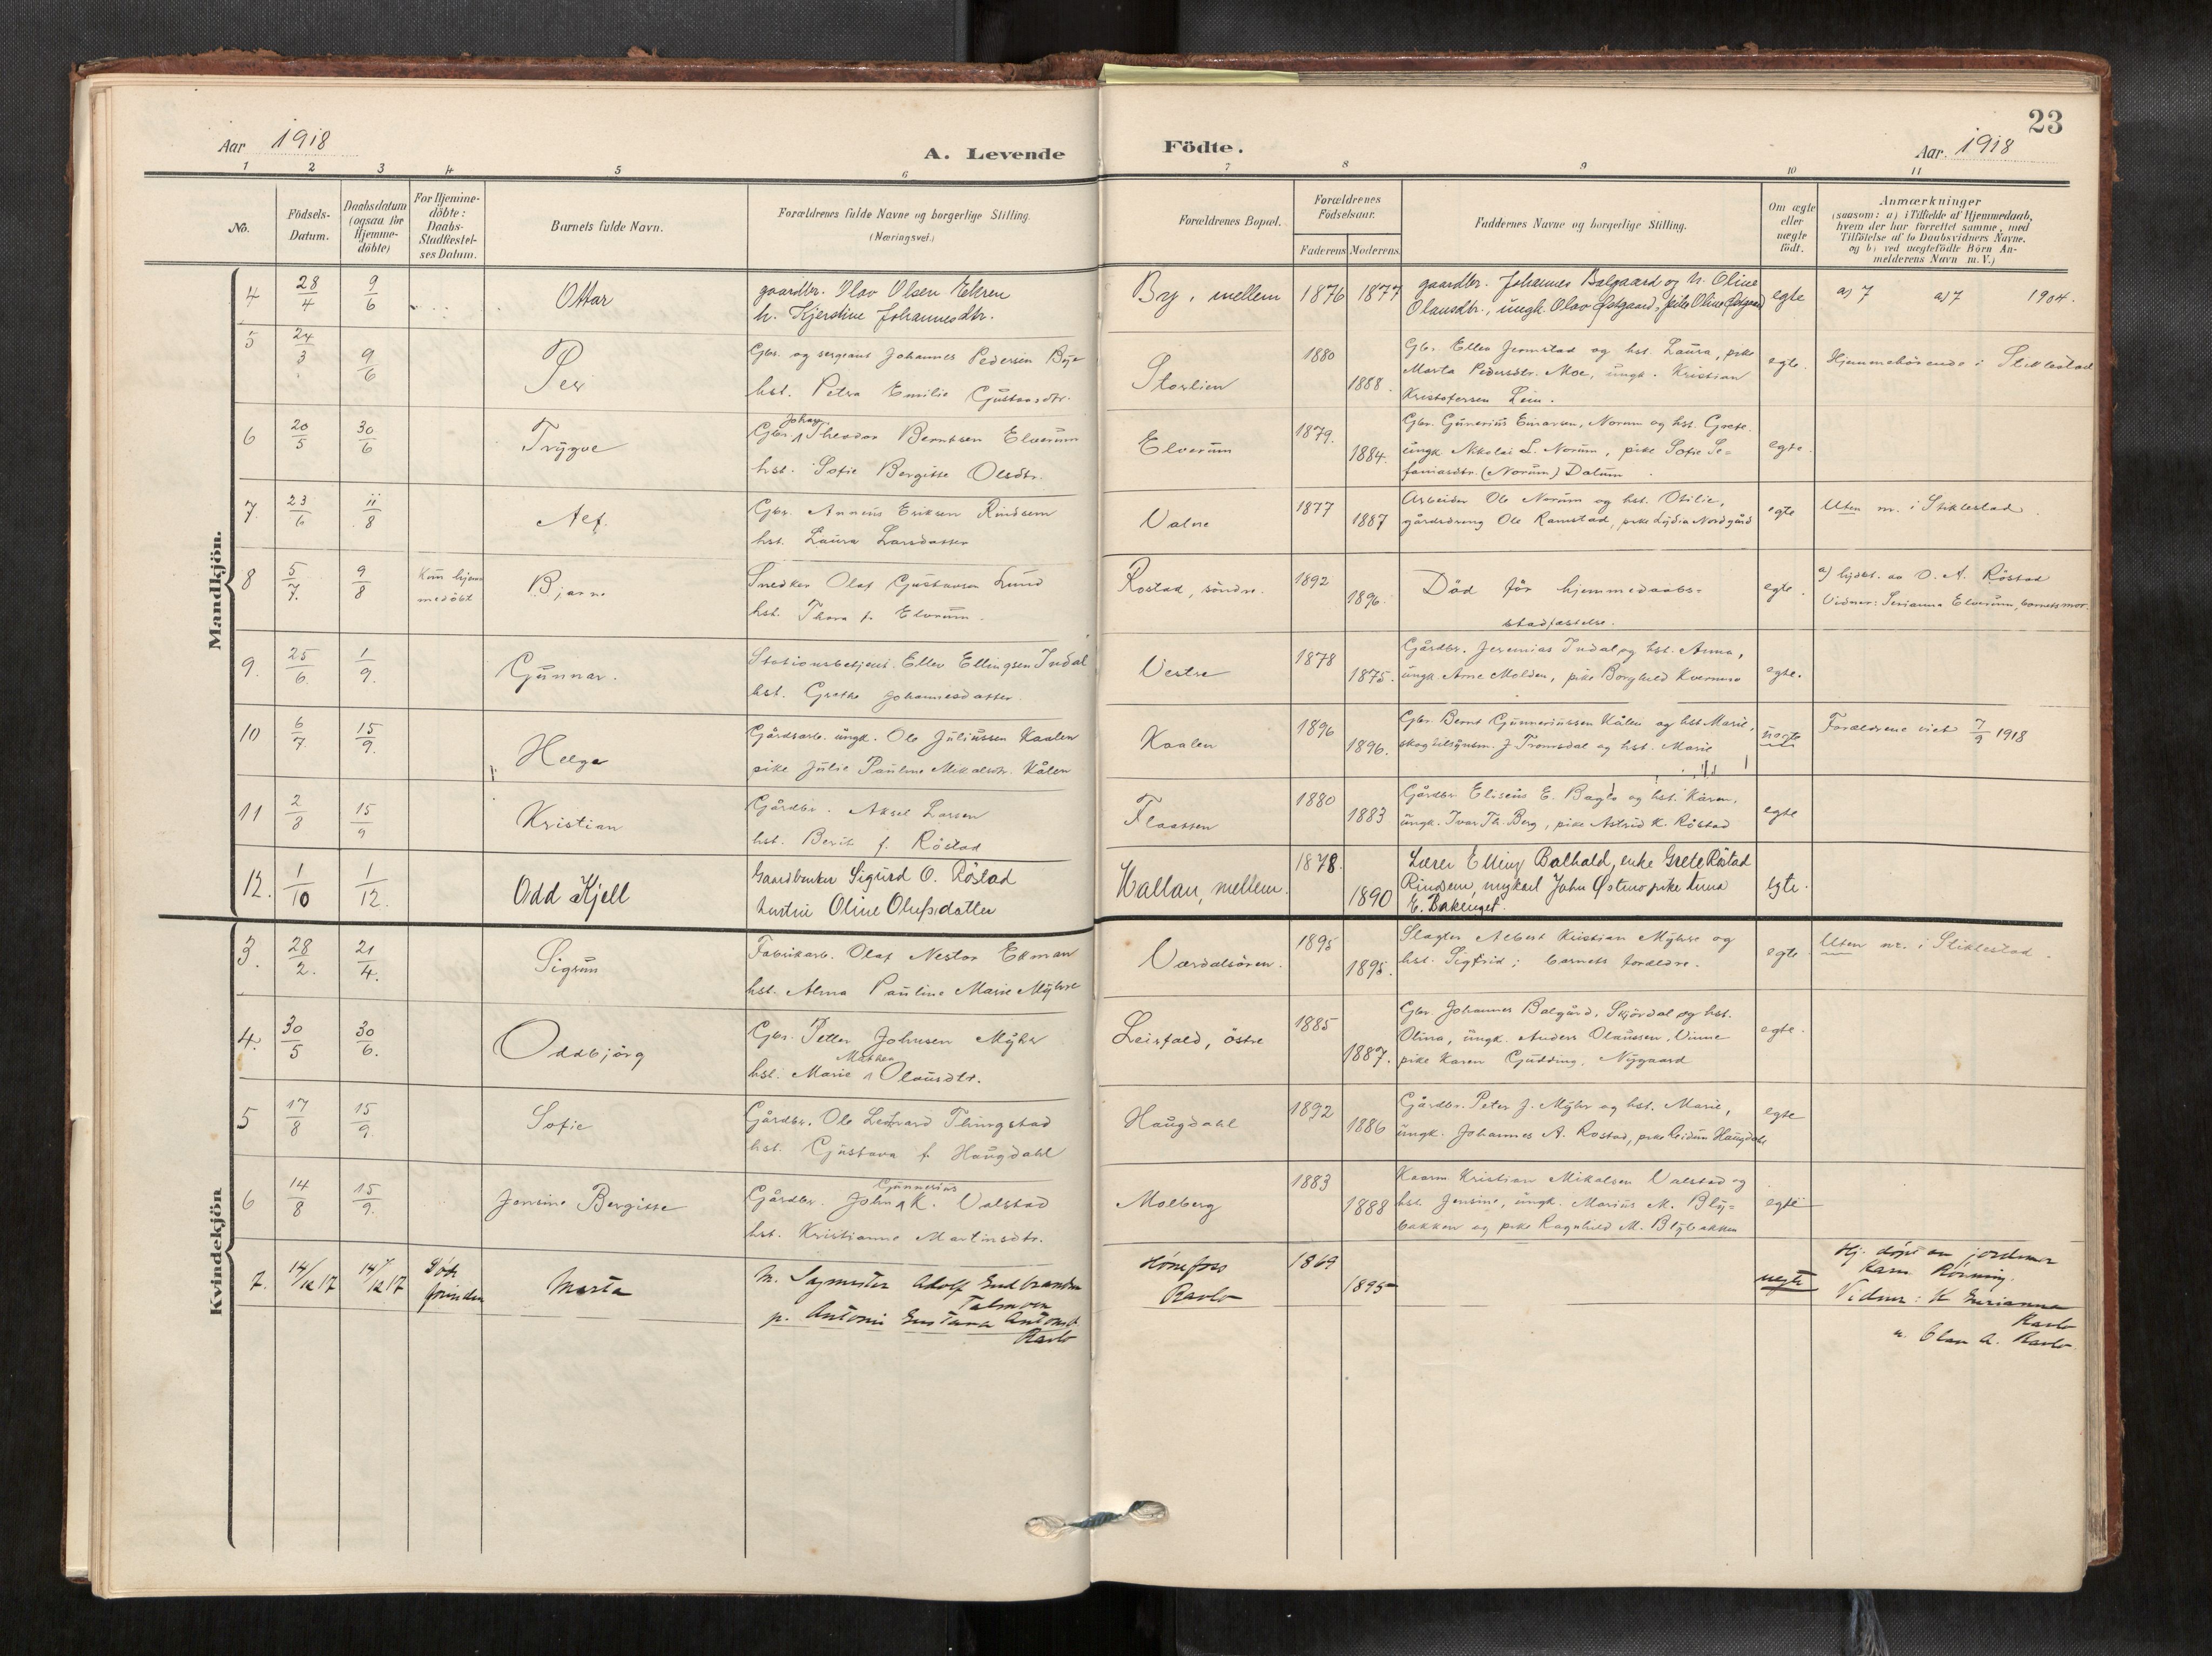 23
Aar 1918
A. Levende
Födte.
Aar. 1918
1 2 3 4 5 6 7 8 9 10 11
No.
Födsels-
Datum.
Daabsdatum
(ogsaa for
Hjemme-
döbte)
For Hjemme-
döbte:
Daabs-
Stadfæstel-
ses Datum.
Barnets fulde Navn.
Forældrenes fulde Navne og borgerlige Stilling.
(Næringsvei.)
Forældrenes Bopæl.
Forældrenes
Födselsaar.
Faderens Moderens
Faddernes Navne og borgerlige Stilling.
Om ægte
eller
uægte
födt.
Anmærkninger
(saasom: a) i Tilfælde af Hjemmedaab,
hvem der har forrettet samme, med
Tilföielse af to Daabsvidners Navne.
og b) ved uægtefödte Börn An-
melderens Navn m. V.)
Mandkjön.
4 28/4 9/6 Ottar
gaardbr. Olav Olsen Ekren
h. Kjerstine Johannesdtr.
By, mellem 1876 1877
gaardbr. Johannes Balgaard og h. Oline
Olausdtr., ungk. Olav Østgaard, pike Oline Østgaard
egte
a) 7 a) 7 1904.
5 24/3 9/6 Per
Gbr. og sergeant Johannes Pedersen Bye
hst. Petra Emilie Gustavsdtr.
Storlien 1880 1888.
Gb. Ellen Jermstad og hst. Laura, pike
Marta Pedersdtr. Moe, ungk. Kristian
Kristofersen Lein.
egte.
Hjemmehörende i Stiklestad
6 20/5 30/6 Trygve
Johan
Gbr. Theodor Berntsen Elverum
hst. Sofie Bergitte Olsdtr.
Elverum 1879. 1884.
Gbr. Gunerius Einarsen, Norum og hst. Grete.
ungk Nikolai L. Norum, pike Sofie Se=
faniasdtr. (Norum) Dalum
egte.
7. 23/6 11/8 Alf.
Gbr. Anneus Eriksen Rindsem
hst. Laura Larsdatter
Valne 1877 1887
Arbeider Ole Norum og hst. Otilie,
gårdsdreng Ole Ramstad, pike Lydia Nordgård
egte
Uten m. i Stiklestad.
8 5/7. 9/8 Kun hjem
medöbt Bjarne
Snedker Olaf Gustavsen Lund
hst. Thora f. Elverum.
Rostad, söndre. 1892 1896.
Död för hjemmedaabs=
stadfæstelse.
egte.
a) hjdbt. av O. A. Röstad
Vidner: Serianna Elverum, barnets mor.
9. 25/6. 1/9. Gunnar.
Stationsbetjent Ellev Ellingsen Indal
hst. Grethe Johannesdatter.
Vestre 1878 1875.
Gårdbr. Jeremias Indal og hst. Anna,
ungk. Arne Molden, pike Borghild Kvernmo
egte.
10 6/7 15/9. Helge
Gårdsarb. ungk. Ole Juliussen Kaalen
pike Julie Pauline Mikalsdtr. Kålen
Kaalen 1896 1896.
Gbr. Bernt Gunneriussen Kålen og hst Marie,
skogtilsynsm. J Tromsdal og hst. Marie
uegte
Foreldrene viet 7/9 1918
11 2/8 15/9 Kristian
Gårdbr. Aksel Larsen
hst. Berit f. Röstad
Flaatten 1880 1883
Gårdbr Eliseus E. Baglo og hst. Karen,
ungk. Ivar Th. Berg, pike Astrid K. Röstad
egte
12. 1/10 1/12. Odd Kjell
Gaardbruker Sigurd O. Röstad
hustru Oline Olufsdatter
Hallan, mellem. 1878. 1890
Lærer Elling Bolhald, enke Grete Röstad
Rindsem, ungkarl John Østmo pike Anna
E. Bakenget.
egte.
Kvindekjön
3. 28/2. 21/4. Sigrun
Fabrikarb. Olaf Nestor Ekman
hst. Alma Pauline Marie Myhre
Værdalsören. 1895 1895.
Slagter Albert Kristian Myhre og
hst. Sigfrid; barnets foreldre.
egte
Uten m. i Stiklestad.
4. 30/5 30/6. Oddbjörg
Gbr. Petter Johnsen Myhr
hst. Marie Olausdtr.
Leirfald, östre 1885 1887.
Gbr Johannes Balgård, Skjördal og hst.
Olina, ungk. Anders Olaussen. Vinne
pike Karen Gudding, Nygaard
egte.
5 17/8 15/9. Sofie
Gårdbr. Ole Leonard Thingstad
hst. Gustava f. Haugdahl
Haugdahl 1892 1886
Gårdbr. Peter J. Myhr og hst. Marie,
ungk. Johannes A. Rostad, pike Reidun Haugdahl
egte
6 14/8 15/9. Jensine Bergitte
Gunnerius
Gårdbr. John K. Valstad
hst. Kristianne Martinsdtr.
Molberg 1883 1888
Kaarm Kristian Mikalsen Valstad og
hst. Jensine, ungk. Marius M. Bly=
bakken og pike Ragnhild M. Blybakken
egte
7. 14/12 17 14/12 17 Död
forinden Marta
m. Sagmester Adolf Gudbrandsen
p. Antonie Gustava Antonsd.
Ravlo
Hönefoss
Ravlo 1869 1895
uegte
Hj. döpt av jordmor
Karen Rönning.
Vidner: K Serianna
Ravlo
u. Olav A. Ravlo